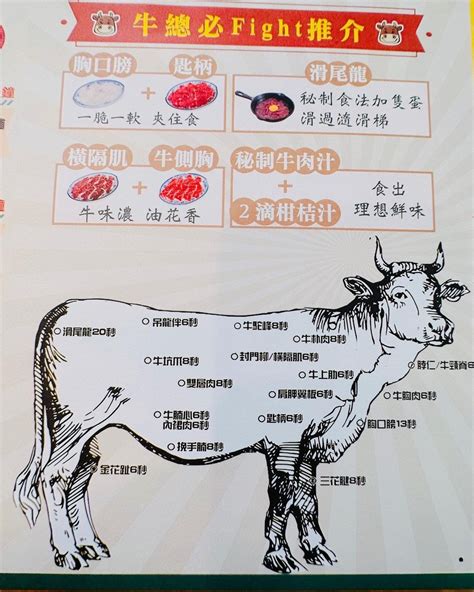 牛總必Fight推介
胸口膀 + 匙柄
一脆一軟 夾住食
滑尾龍
秘制食法加隻蛋
滑過瀡滑梯
橫隔肌 + 牛側胸
牛味濃 油花香
秘制牛肉汁
+
2滴柑桔汁
食出
理想鮮味
滑尾龍20秒
吊龍伴6秒
牛坑爪8秒
雙層肉8秒
牛腩心6秒
內裙肉6秒
換手腩8秒
金花趾6秒
牛駝峰8秒
牛朴肉8秒
封門柳/橫隔肌6秒
牛上肋6秒
肩胛翼板6秒
匙柄6秒
脖仁/牛頸脊6
牛胸肉6秒
胸口膀13秒
三花腱8秒
鐘
鐘